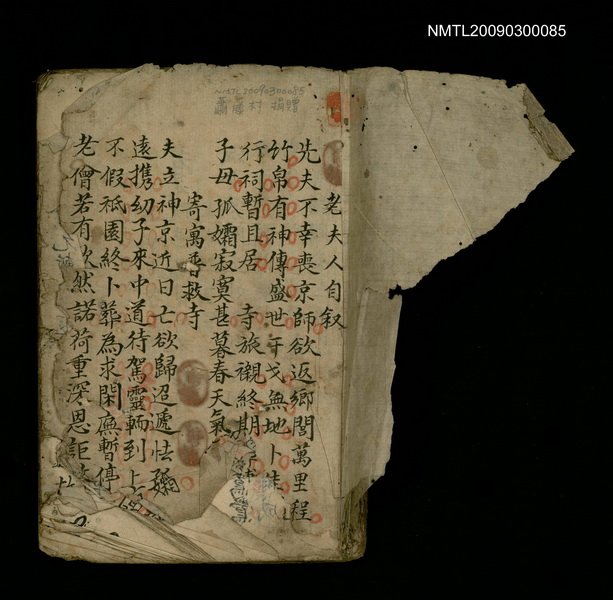 NMTL20090300085
NMTL20090300085
蕭藤村 捐贈
老夫人自叙
先夫不幸喪京師欲返鄉閭萬里程
竹帛有神傳盛世干戈無地卜佳
行祠暫且居 寺旅襯終期
子母孤孀寂寞甚暮春天氣
寄寓普救寺
夫立神京近日亡欲歸迢遞怯
遠携幼子來中道待駕靈輀到上
不假祗園終卜葬為求閑廡暫停
老僧若有欣然諾荷重深恩詎